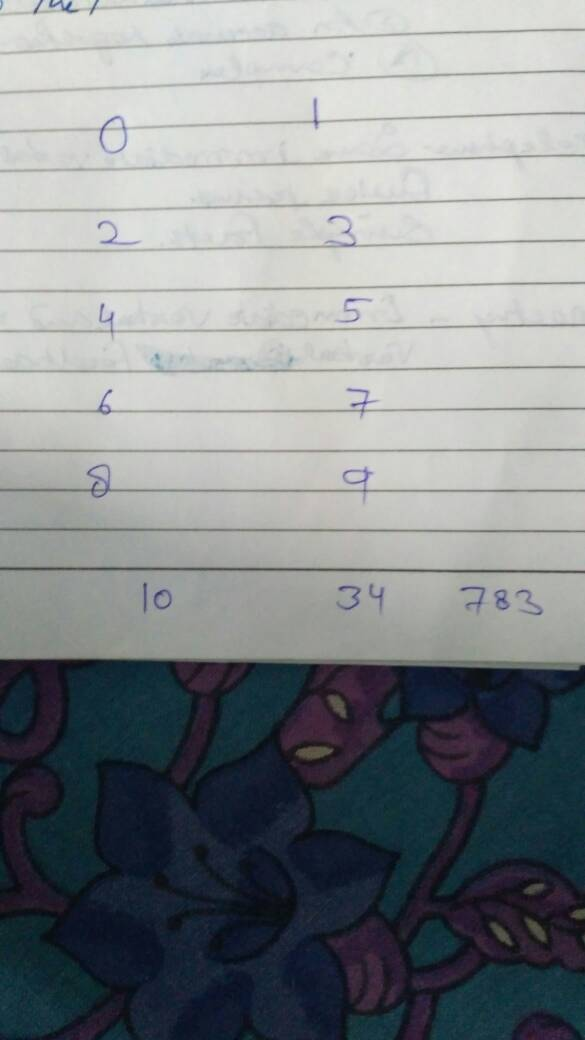 0 1
2 3
4 5
6 7
8 9
10 34 783